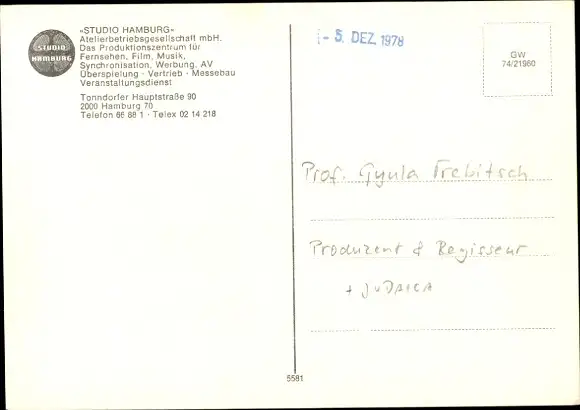 STUDIO
HAMBURG
«STUDIO HAMBURG»
Atelierbetriebsgesellschaft mbH.
Das Produktionszentrum für
Fernsehen, Film, Musik,
Synchronisation, Werbung, AV
Überspielung · Vertrieb · Messebau
Veranstaltungsdienst
Tonndorfer Hauptstraße 90
2000 Hamburg 70
Telefon 66 88 1 · Telex 02 14 218
- 5. DEZ. 1978
GW
74/21960
Prof. Gyula Trebitsch
Produzent & Regisseur
+ JUDAICA
5581